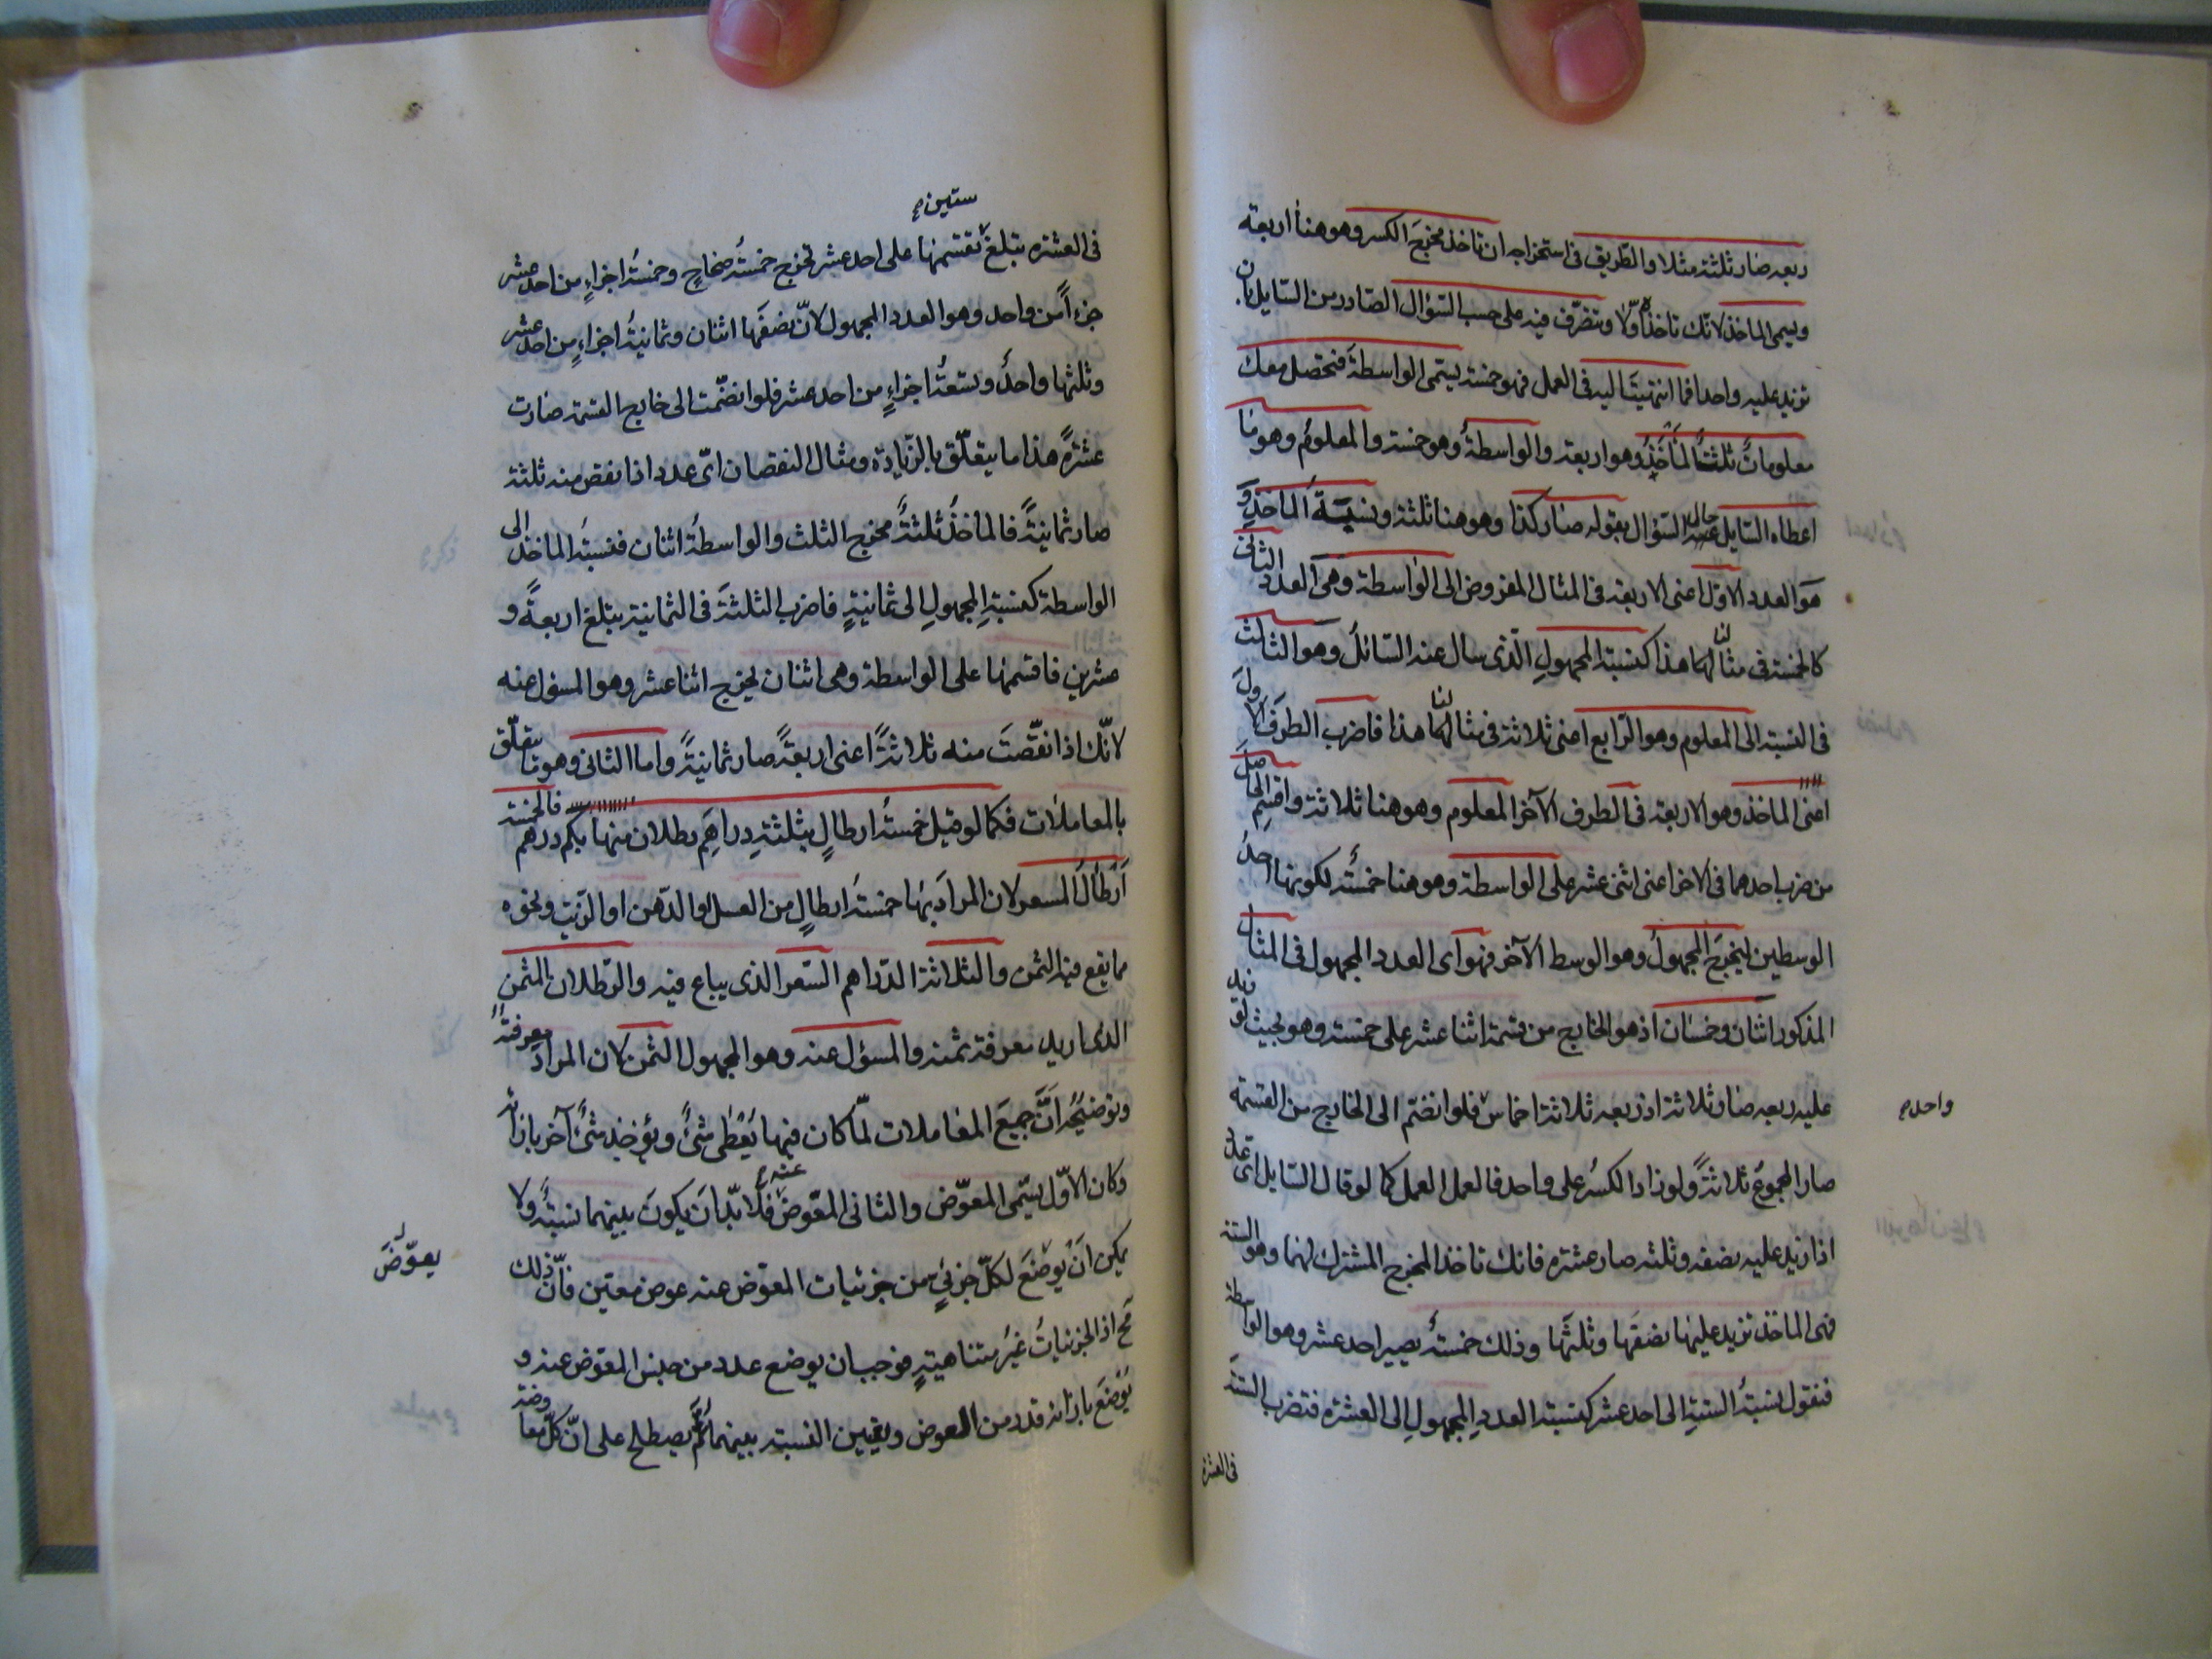 ربعه صار ثلثة مثلا والطريق فى استخراجه ان تاخذ مخرج الكسر وهو هنا اربعة
ويسمى الماخذ لانك تاخذه اولا وتتصرف فيه على حسب السؤال الصادر من السايل بان
تزيد عليه واحدا فما انتهيت اليه فى العمل فهو خمسة يسمى الواسطة فتحصل معك
معلومات ثلث المأخذ وهو اربعة والواسطة وهو خمسة والمعلوم وهو ما
اعطاه السايل حال السؤال بقوله صار كذا وهو هنا ثلثة ونسبة الماخذ و
هو العدد الاول اعنى الاربعة فى المثال المفروض الى الواسطة وهى العدد الثانى
كالخمسة فى مثالنا هذا كنسبة المجهول الذى سال عنه السائل وهو الثالث
فى النسبة الى المعلوم وهو الرابع اعنى ثلاثة فى مثالنا هذا فاضرب الطرف الاول
اعنى الماخذ وهو الاربعة فى الطرف الآخر المعلوم وهو هنا ثلاثة واقسم الحاصل
من ضرب احدهما فى الاخر اعنى اثنى عشر على الواسطة وهو هنا خمسة لكونها احد
الوسطين ليخرج المجهول وهو الوسط الآخر فهو اى العدد المجهول فى المثال
المذكور اثنان وخمسان اذ هو الخارج من قسمة اثنا عشر على خمسة وهو بحيث لو زيد
عليه ربعه صار ثلاثة اذ ربعه ثلاثة اخماس فلو انضم الى الخارج من القسمة
واحد صح
صار المجموع ثلاثة ولو زاد الكسر على واحد فالعمل العمل كما لو قال السايل اى عدد
اذا زيد عليه نصفه وثلثه صار عشرة فانك تاخذ المخرج المشترك لهما وهو الستة
فهى الماخذ تزيد عليها نصفها وثلثها وذلك خمسة يصير احد عشر وهو الواسطة
فنقول نسبة الستة الى احد عشر كنسبة العدد المجهول الى العشرة فتضرب الستة
فى العشرة
ستين صح
فى العشرة يتبلغ تقسمها على احد عشر تخرج خمسة صحاح وخمسة اجزاء من احد عشر
جزءا من واحد وهو العدد المجهول لان نصفها اثنان وثمانية اجزاء من احد عشر
وثلثها واحد وتسعة اجزاء من احد عشر فلو انضمت الى خارج القسمة صارت
عشرة هذا ما يتعلق بالزيادة ومثال النقصان اى عدد اذا نقص منه ثلثة
صار ثمانية فالمأخذ ثلثة مخرج الثلث والواسطة اثنان فنسبة الماخذ الى
الواسطة كنسبة المجهول الى ثمانية فاضرب الثلثة فى الثمانية يتبلغ اربعة و
عشرين فاقسمها على الواسطة وهى اثنان ليخرج اثنا عشر وهو المسؤل عنه
لانك اذا نقصت منه ثلاثة اعنى اربعة صار ثمانية واما الثانى وهو ما يتعلق
بالمعاملات فكما لو قيل خمسة ارطال بثلثة دراهم رطلان منها بكم درهم فالخمسة
أرطال المسعر لان المراد بها خمسة ارطال من العسل او الدهن او الزيت ونحوه
مما يقع فيه الثمن والثلاثة الدراهم السعر الذى يباع فيه والرطلان المثمن
الذى اريد معرفة ثمنه والمسؤل عنه وهو المجهول الثمن لان المراد معرفته
وتوضيحه ان جميع المعاملات لما كان فيها يعطى شئ ويؤخذ شئ آخر بازائه
وكان الاول يسمى المعوض والثانى المعوض عنه صح فلا بد ان يكون بينهما نسبة ولا
يمكن ان يوضع لكل جزئى من جزئيات المعوض عنه عوض معين فان ذلك
يعوض
مح اذ الجزئيات غير متناهية فوجب ان يوضع عدد من جنس المعوض عنه و
يوضع بازائه قدر من العوض وتعيين النسبة بينهما ثم يصطلح على ان كل معاوضة